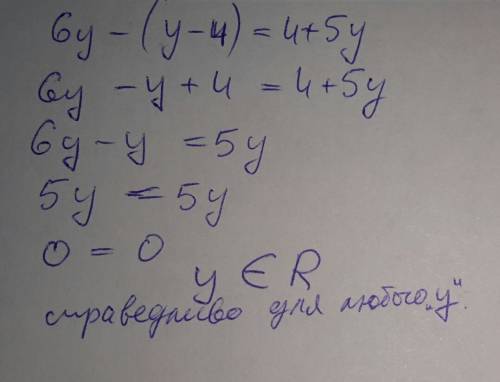 6y - (y - 4) = 4 + 5y
6y - y + 4 = 4 + 5y
6y - y = 5y
5y = 5y
0 = 0
y ∈ R
справедливо для любого „y“.